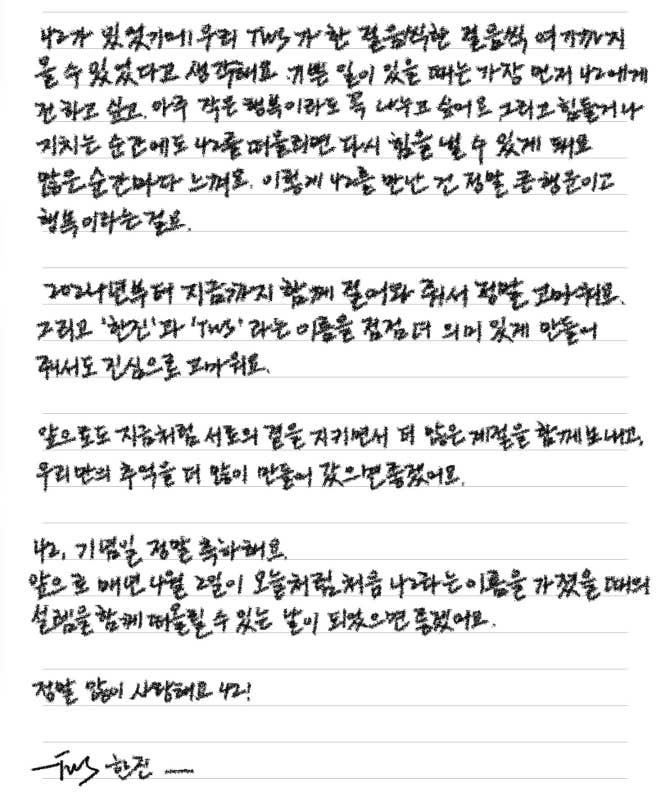 42가 있었기에! 우리 TWS가 한 걸음씩한 걸음씩 여기까지
올 수 있었다고 생각해요. 기쁜 일이 있을 때는 가장 먼저 42에게
전하고 싶고, 아주 작은 행복이라도 꼭 나누고 싶어요 그리고 힘들거나
지치는 순간에도 42를 떠올리면 다시 힘을 낼 수 있게 돼요
많은 순간마다 느껴요. 이렇게 42를 만난 건 정말 큰 행운이고
행복이라는걸요.
2024년부터 지금까지 함께 걸어와 줘서 정말 고마워요.
그리고 '한진'과 'TWS' 라는 이름을 점점 더 의미 있게 만들어
줘서도 진심으로 고마워요.
앞으로도 지금처럼 서로의 곁을 지키면서 더 많은 계절을 함께 보내고,
우리만의 추억을 더 많이 만들어 갔으면 좋겠어요.
42, 기념일 정말 축하해요.
앞으로 매년 4월 2일이 오늘처럼 처음 42라는 이름을 가졌을 때의
설렘을 함께 떠올릴 수 있는 날이 되었으면 좋겠어요.
정말 많이 사랑해요 42!
TWS 한진